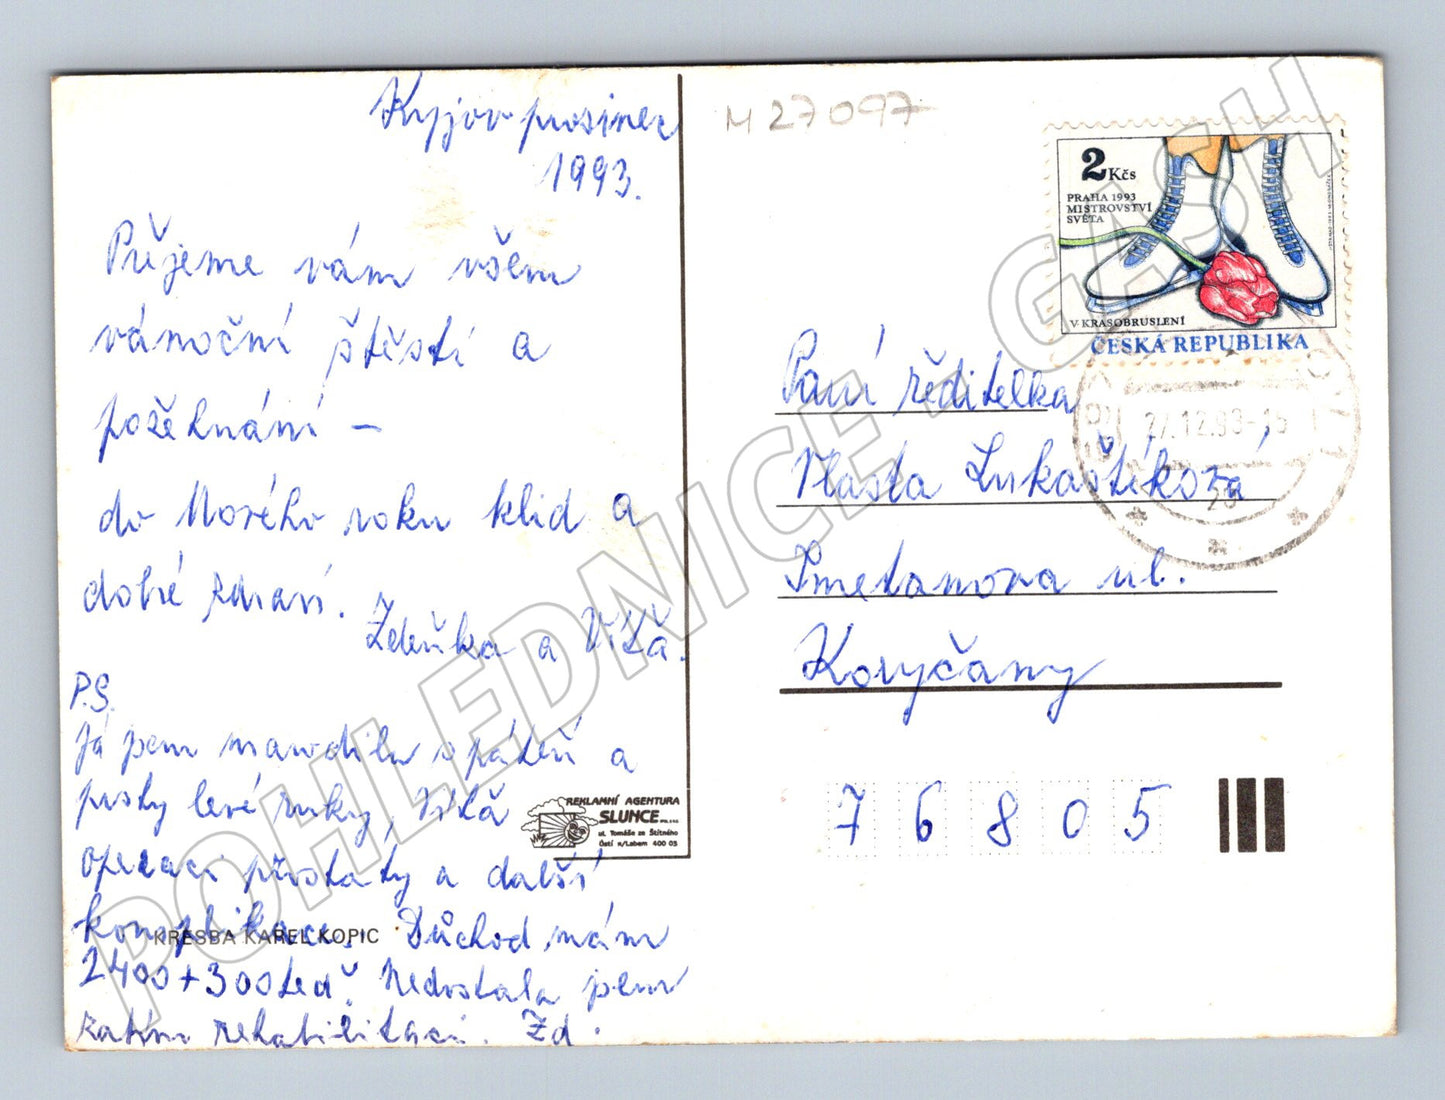 Kyjov prosinec
1993.
Přejeme vám všem
vánoční štěstí a
požehnání –
do Nového roku klid a
dobré zdraví.
Zdeňka a Víťa.
P.S.
Já jsem marodila s páteří a
prsty levé ruky, Víťa
operaci prostaty a další
komplikace. Důchod mám
2400+300 teď. Nedostala jsem
zatím rehabilitaci. Zd.
KRESBA KAREL KOPIC
REKLAMNÍ AGENTURA
SLUNCE
ul. Tomáše ze Štítného
Ústí n/Labem 400 03
M 27097
2 Kčs
PRAHA 1993
MISTROVSTVÍ
SVĚTA
V KRASOBRUSLENÍ
ČESKÁ REPUBLIKA
27.12.93-15
Paní ředitelka
Vlasta Lukaštíková
Smetanova ul.
Koryčany
76805
POHLEDNICE - GASH